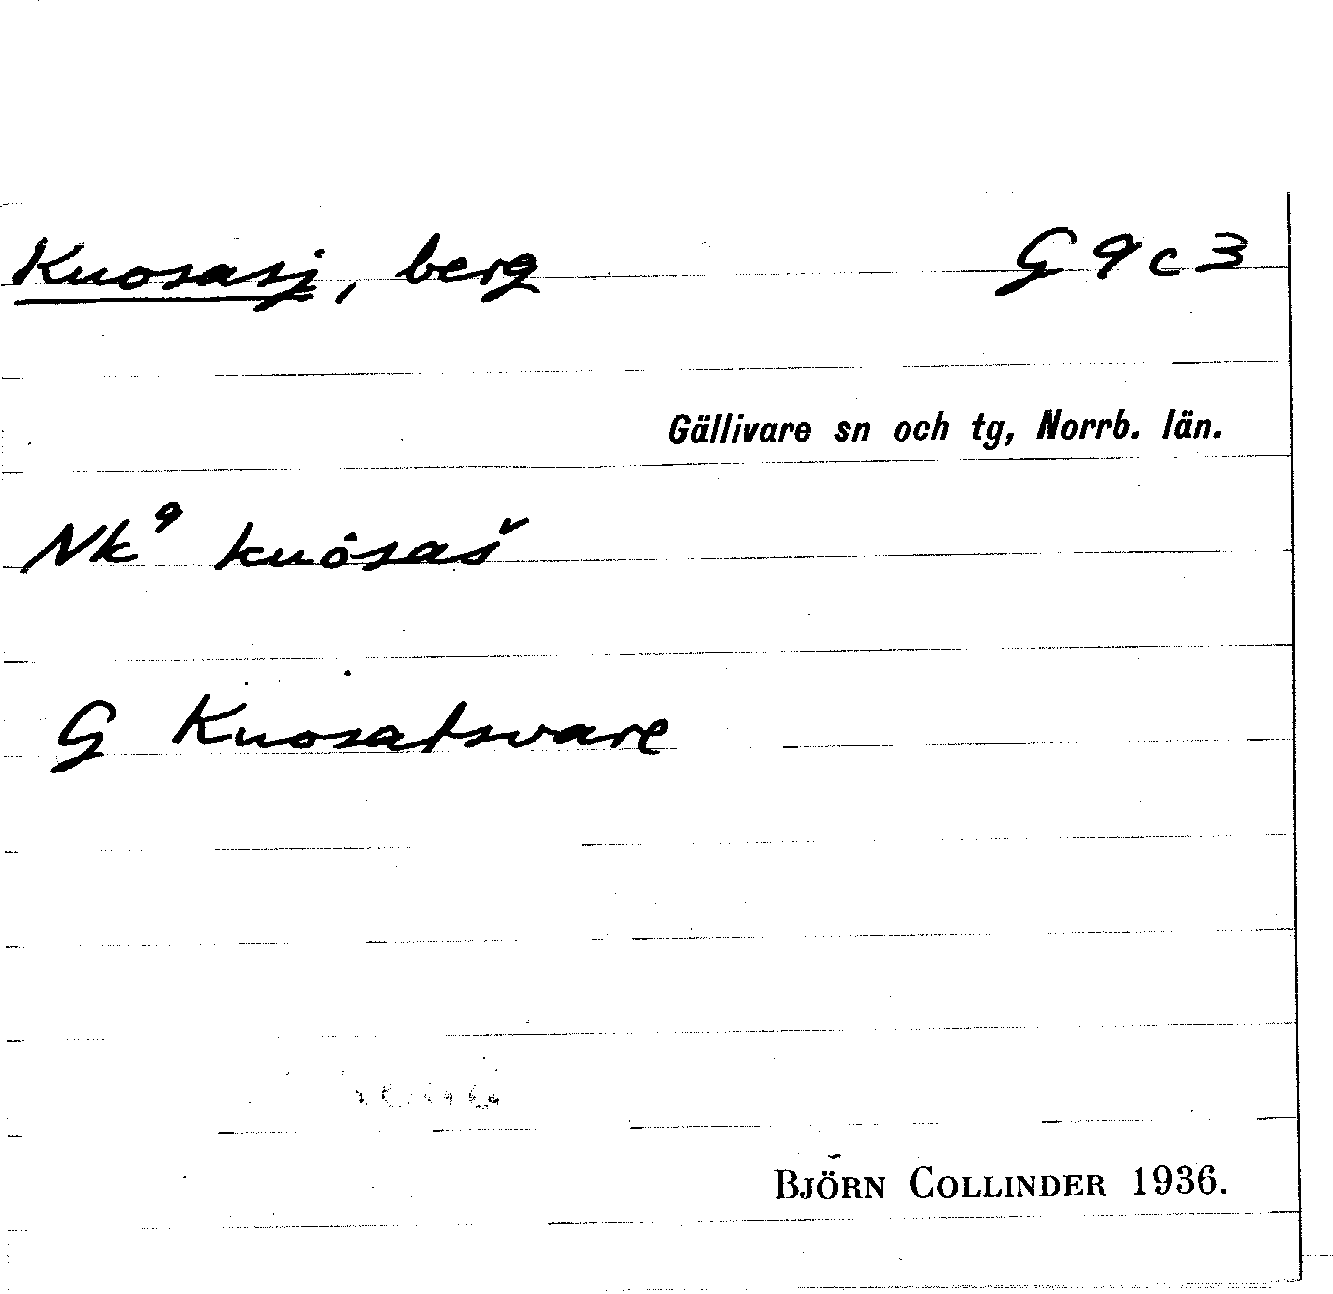 Kuosasj, berg G 9 c 3
Gällivare sn och tg, Norrb. län.
Nk⁹ kuȯsaš
G Kuosatsvare
BJÖRN COLLINDER 1936.